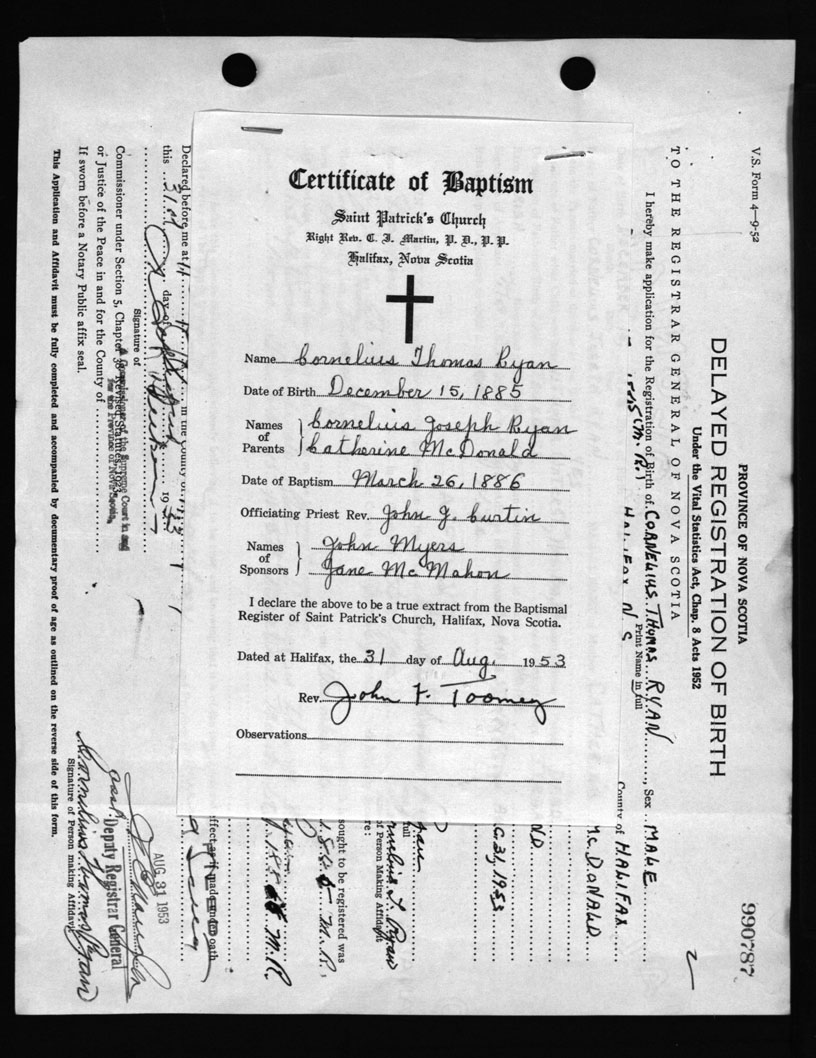 Certificate of Baptism
Saint Patrick's Church
Right Rev. C. J. Martin, P. D., P. P.
Halifax, Nova Scotia
Name Cornelius Thomas Ryan
Date of Birth December 15, 1885
Names of Parents } Cornelius Joseph Ryan
Catherine McDonald
Date of Baptism March 26, 1886
Officiating Priest Rev. John J. Curtin
Names of Sponsors } John Myers
Jane McMahon
I declare the above to be a true extract from the Baptismal
Register of Saint Patrick's Church, Halifax, Nova Scotia.
Dated at Halifax, the 31 day of Aug. 1953
Rev. John F. Toomey
Observations
V.S. Form 4—9-52
990787
PROVINCE OF NOVA SCOTIA
DELAYED REGISTRATION OF BIRTH
Under the Vital Statistics Act, Chap. 8 Acts 1952
TO THE REGISTRAR GENERAL OF NOVA SCOTIA
I hereby make application for the Registration of Birth of CORNELIUS THOMAS RYAN, Sex MALE
Print Name in full
HALIFAX N.S County of HALIFAX
McDONALD
AUG 31, 1953
full
of Person Making Affidavit
sought to be registered was
M.R.
M.R.
effect as if made under oath
Declared before me at
this 31st day of 1953
Signature of
Commissioner under Section 5, Chapter
or Justice of the Peace in and for the County of
If sworn before a Notary Public affix seal.
A Commissioner of the Supreme Court in and
for the Province of Nova Scotia
AUG 31 1953
Deputy Registrar General
Cornelius Thomas Ryan
Signature of Person making Affidavit
This Application and Affidavit must be fully completed and accompanied by documentary proof of age as outlined on the reverse side of this form.